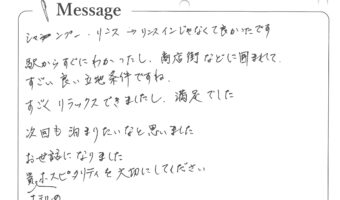 Message
シャンプー・リンス → リンスインじゃなくて良かったです
駅からすぐにわかったし、商店街などに囲まれて、
すごい良い立地条件ですね。
すごくリラックスできましたし、満足でした
次回も泊まりたいなと思いました
お世話になりました
ホスピタリティを大切にしてください